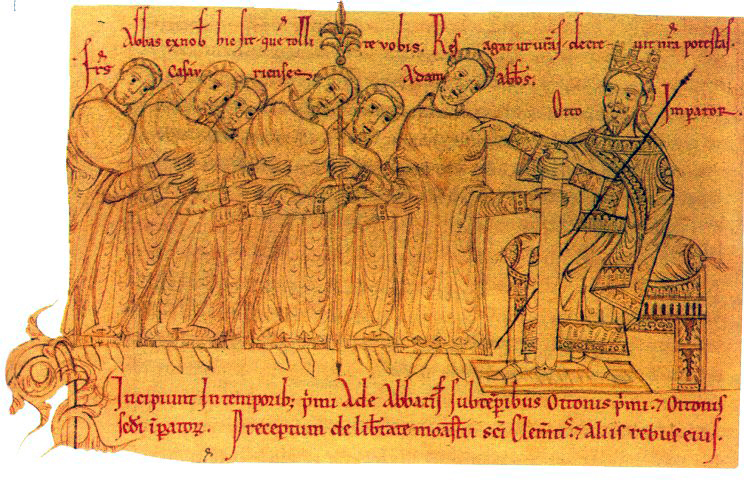 Abbas ex nob̅ hic sit · que tolli te vobis. Res agat ut vr̅as decre uit nr̅a potestas.
Frs̅ Casaurienses Adam abb̅s.
Otto Imperator.
Incipiunt In temporib; p̅mi Ade Abbatis̅ sub te̅poribus Ottonis p̅mi. ⁊ Ottonis
sedi̅ i̅pator. Preceptum de lib̅tate moast̅ii sc̅i Clem̅ti. ⁊ Aliis rebus eius.